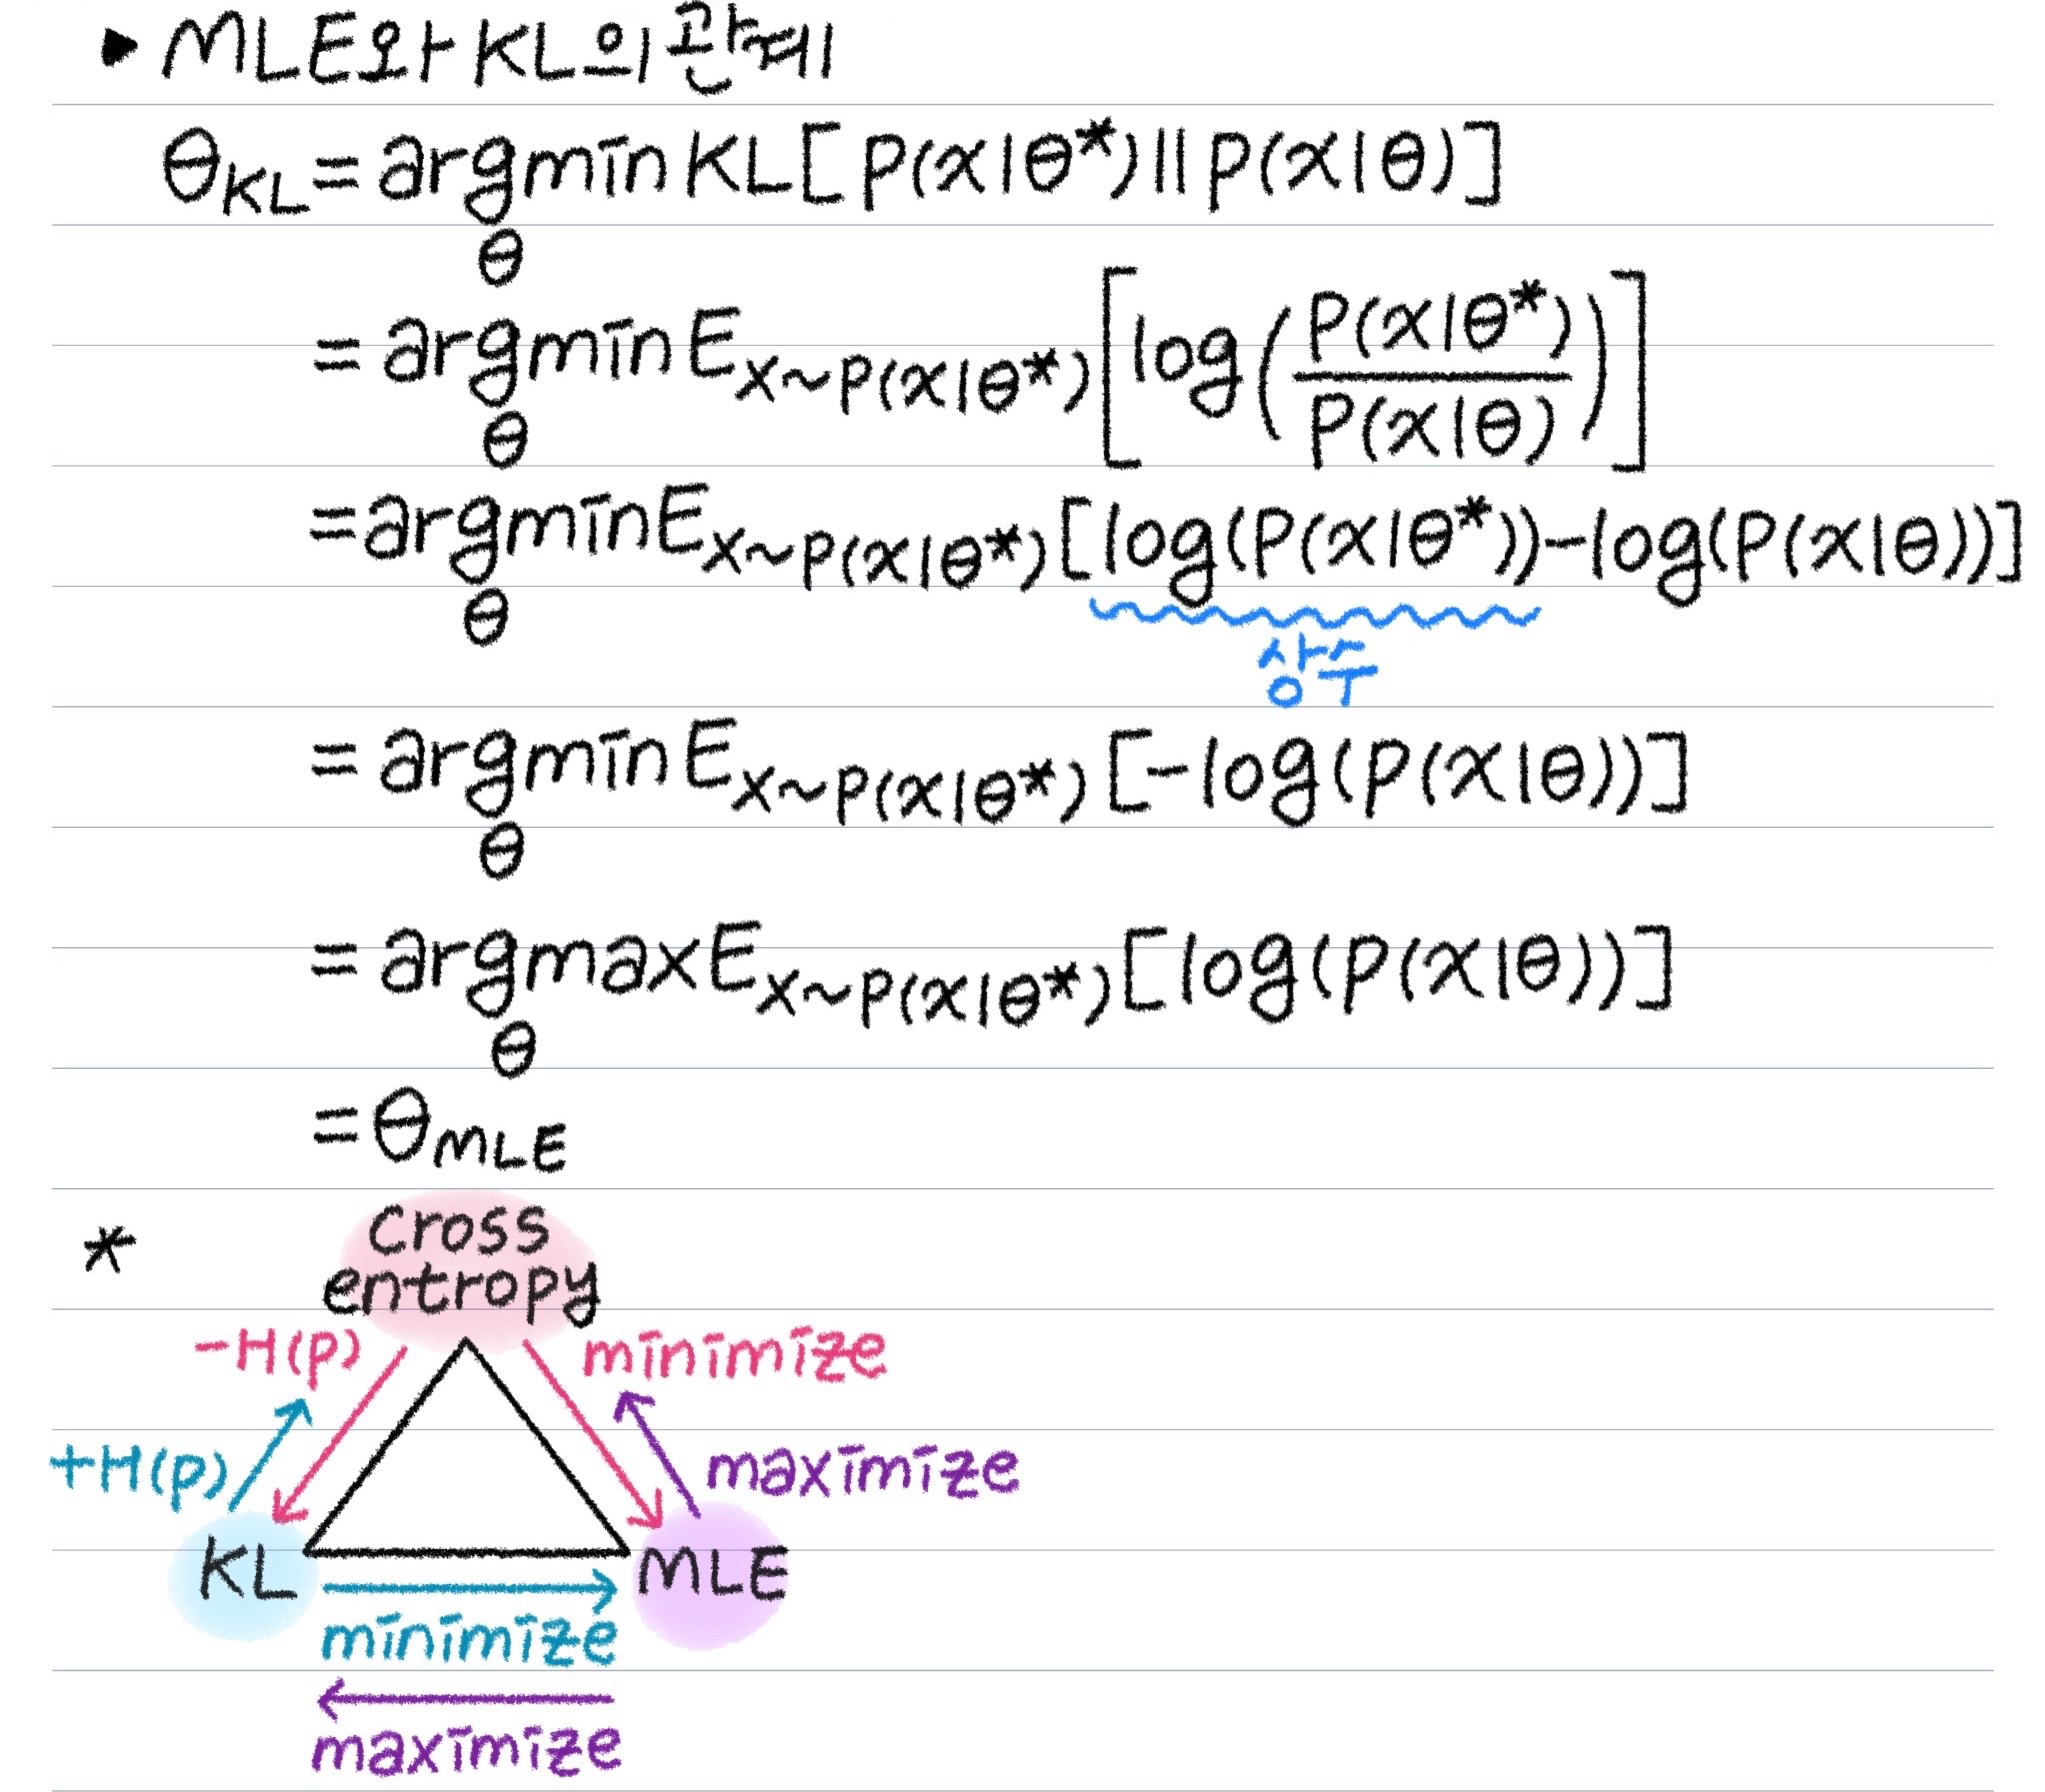 ▶ MLE와 KL의 관계
θ_KL = argmin_θ KL[P(x|θ*)||P(x|θ)]
= argmin_θ E_{x~P(x|θ*)}[log(P(x|θ*)/P(x|θ))]
= argmin_θ E_{x~P(x|θ*)}[log(P(x|θ*))-log(P(x|θ))]
상수
= argmin_θ E_{x~P(x|θ*)}[-log(P(x|θ))]
= argmax_θ E_{x~P(x|θ*)}[log(P(x|θ))]
= θ_MLE
*
cross
entropy
-H(p) minimize
+H(p) maximize
KL MLE
minimize
maximize